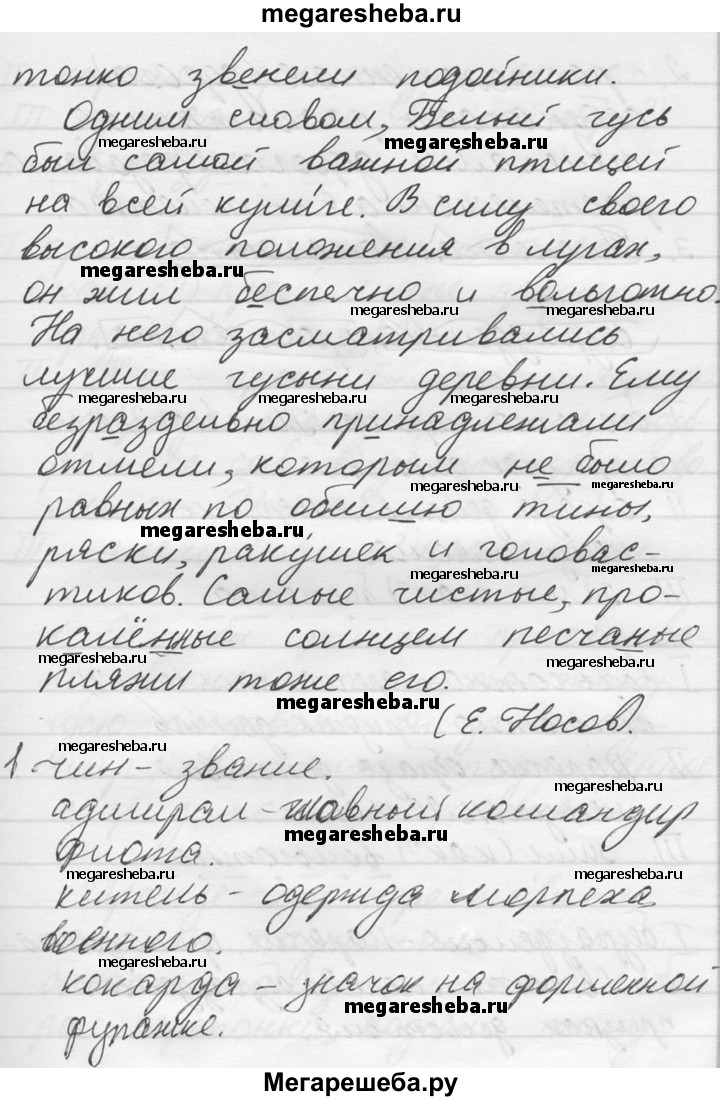 megaresheba.ru
тонко звенели подойники.
Одним словом, Белый гусь
megaresheba.ru megaresheba.ru
был самой важной птицей
на всей кули́ге. В силу своего
высокого положения в лугах,
megaresheba.ru
он жил беспечно и вольготно.
megaresheba.ru megaresheba.ru
На него засматривались
лучшие гусыни деревни. Ему
megaresheba.ru megaresheba.ru megaresheba.ru
безраздельно принадлежали
отмели, которым не было
megaresheba.ru megaresheba.ru
равных по обилию тины,
megaresheba.ru
ряски, ракушек и головас-
megaresheba.ru megaresheba.ru
тиков. Самые чистые, про-
калённые солнцем песчаные
megaresheba.ru megaresheba.ru
пляжи тоже его.
megaresheba.ru
(Е. Носов).
megaresheba.ru
1. чин – звание.
megaresheba.ru
адмирал – главный командир
megaresheba.ru
флота.
megaresheba.ru megaresheba.ru
китель – одержида морпеха
военного.
megaresheba.ru
кокарда – значок на форменной
megaresheba.ru
фуражке.
Мегарешеба.ру